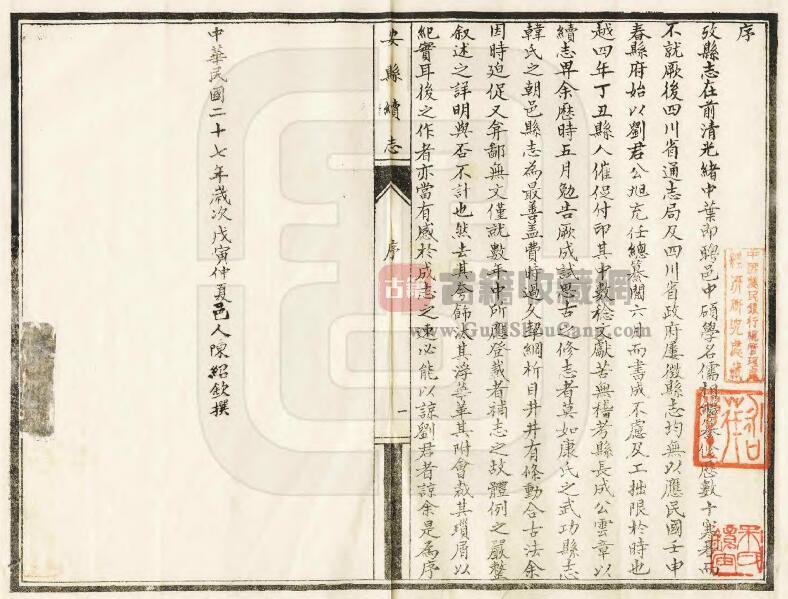 序
攷縣志在前清光緒中葉即聘邑中碩學名儒相繼修歷數十寒暑而
不就厥後四川省通志局及四川省政府屢徵縣志均無以應民國壬申
春縣府始以劉君公旭充任總纂閱六月而書成不慮及工拙限於時也
越四年丁丑縣人催促付印其中數稔文獻苦無稽考縣長成公雲章以
續志畀余歷時五月勉告厥成試思古之修志者莫如康氏之武功縣志
韓氏之朝邑縣志為最善蓋費時過久挈綱析目井井有條動合古法余
因時迫促又弇鄙無文僅就數年中所應登載者補志之故體例之嚴整
叙述之詳明與否不計也然去其夸飾汰其浮華革其附會裁其瑣屑以
紀實耳後之作者亦當有感於成志之速必能以諒劉君者諒余是為序
安縣續志
序
一
中華民國二十七年歲次戊寅仲夏邑人陳紹欽撰
古籍收藏網
www.GuJiShouCang.com